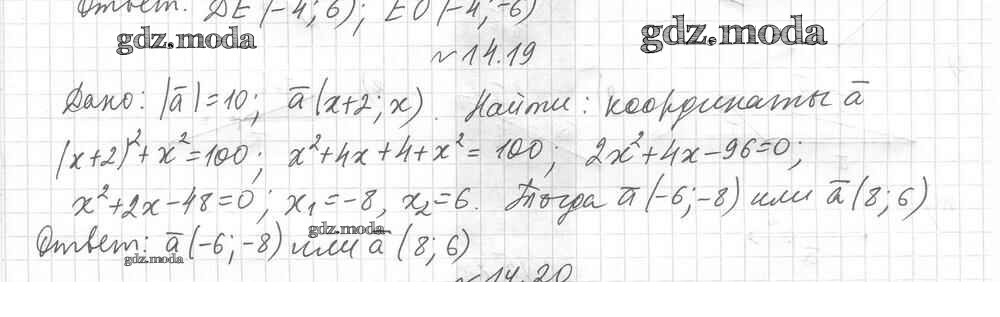 Ответ: DE (-4; 6); EO (-4; -6)
gdz.moda
gdz.moda
№ 14.19
Дано: |a̅|=10; a̅(x+2; x). Найти: координаты a̅
(x+2)²+x²=100; x²+4x+4+x²=100; 2x²+4x-96=0;
x²+2x-48=0; x₁=-8, x₂=6. Тогда a̅(-6;-8) или a̅(8; 6)
gdz.moda
Ответ: a̅(-6;-8) или a̅(8; 6)
gdz.moda
№ 14.20